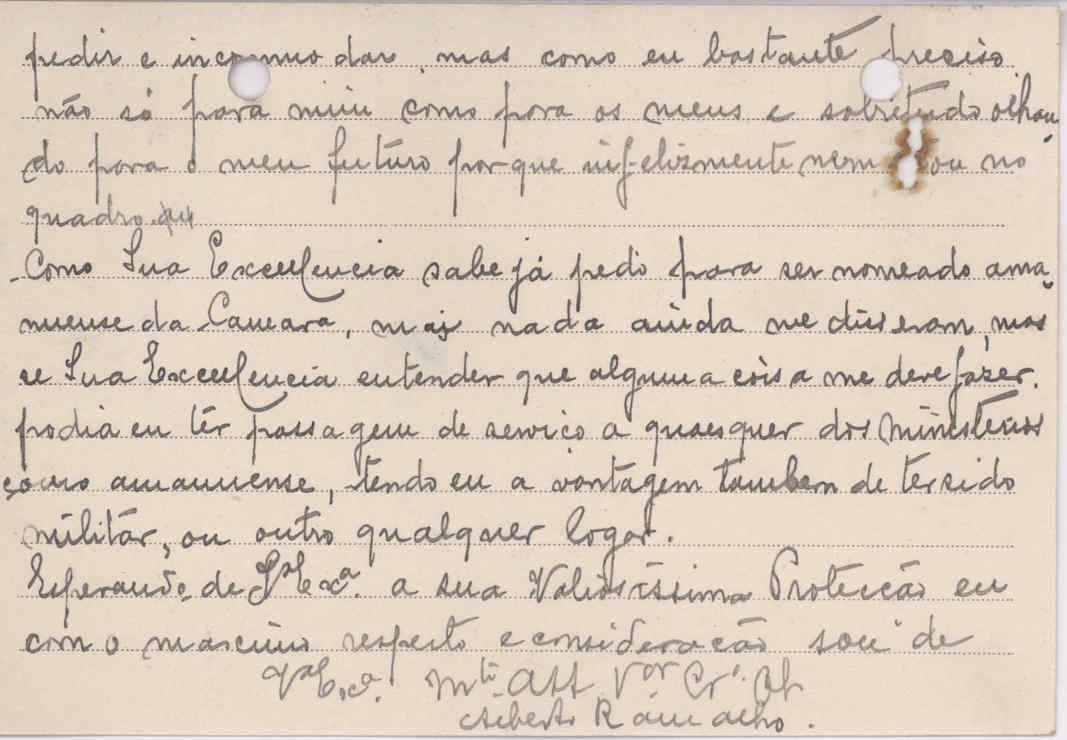 pedir e incommodar, mas como eu bastante preciso
não só para mim como para os meus e sobretudo olhan-
do para o meu futuro porque infelizmente nem sou no
quadro.
Como Sua Excellencia sabe já pedi para ser nomeado ama-
nuense da Camara, mas nada ainda me disseram, mas
se Sua Excellencia entender que alguma coisa me deve fazer.
podia eu têr passagem de serviço a quaesquer dos ministerios
como amanuense, tendo eu a vantagem tambem de ter sido
militár, ou outro qualquer logar.
Esperando de Vª Exª. a sua Valiosissima Protecção eu
com o maximo respeito e consideração sou de
Vª Exª. Mto. Att Vor Cr. Ob
Alberto Ramalho.